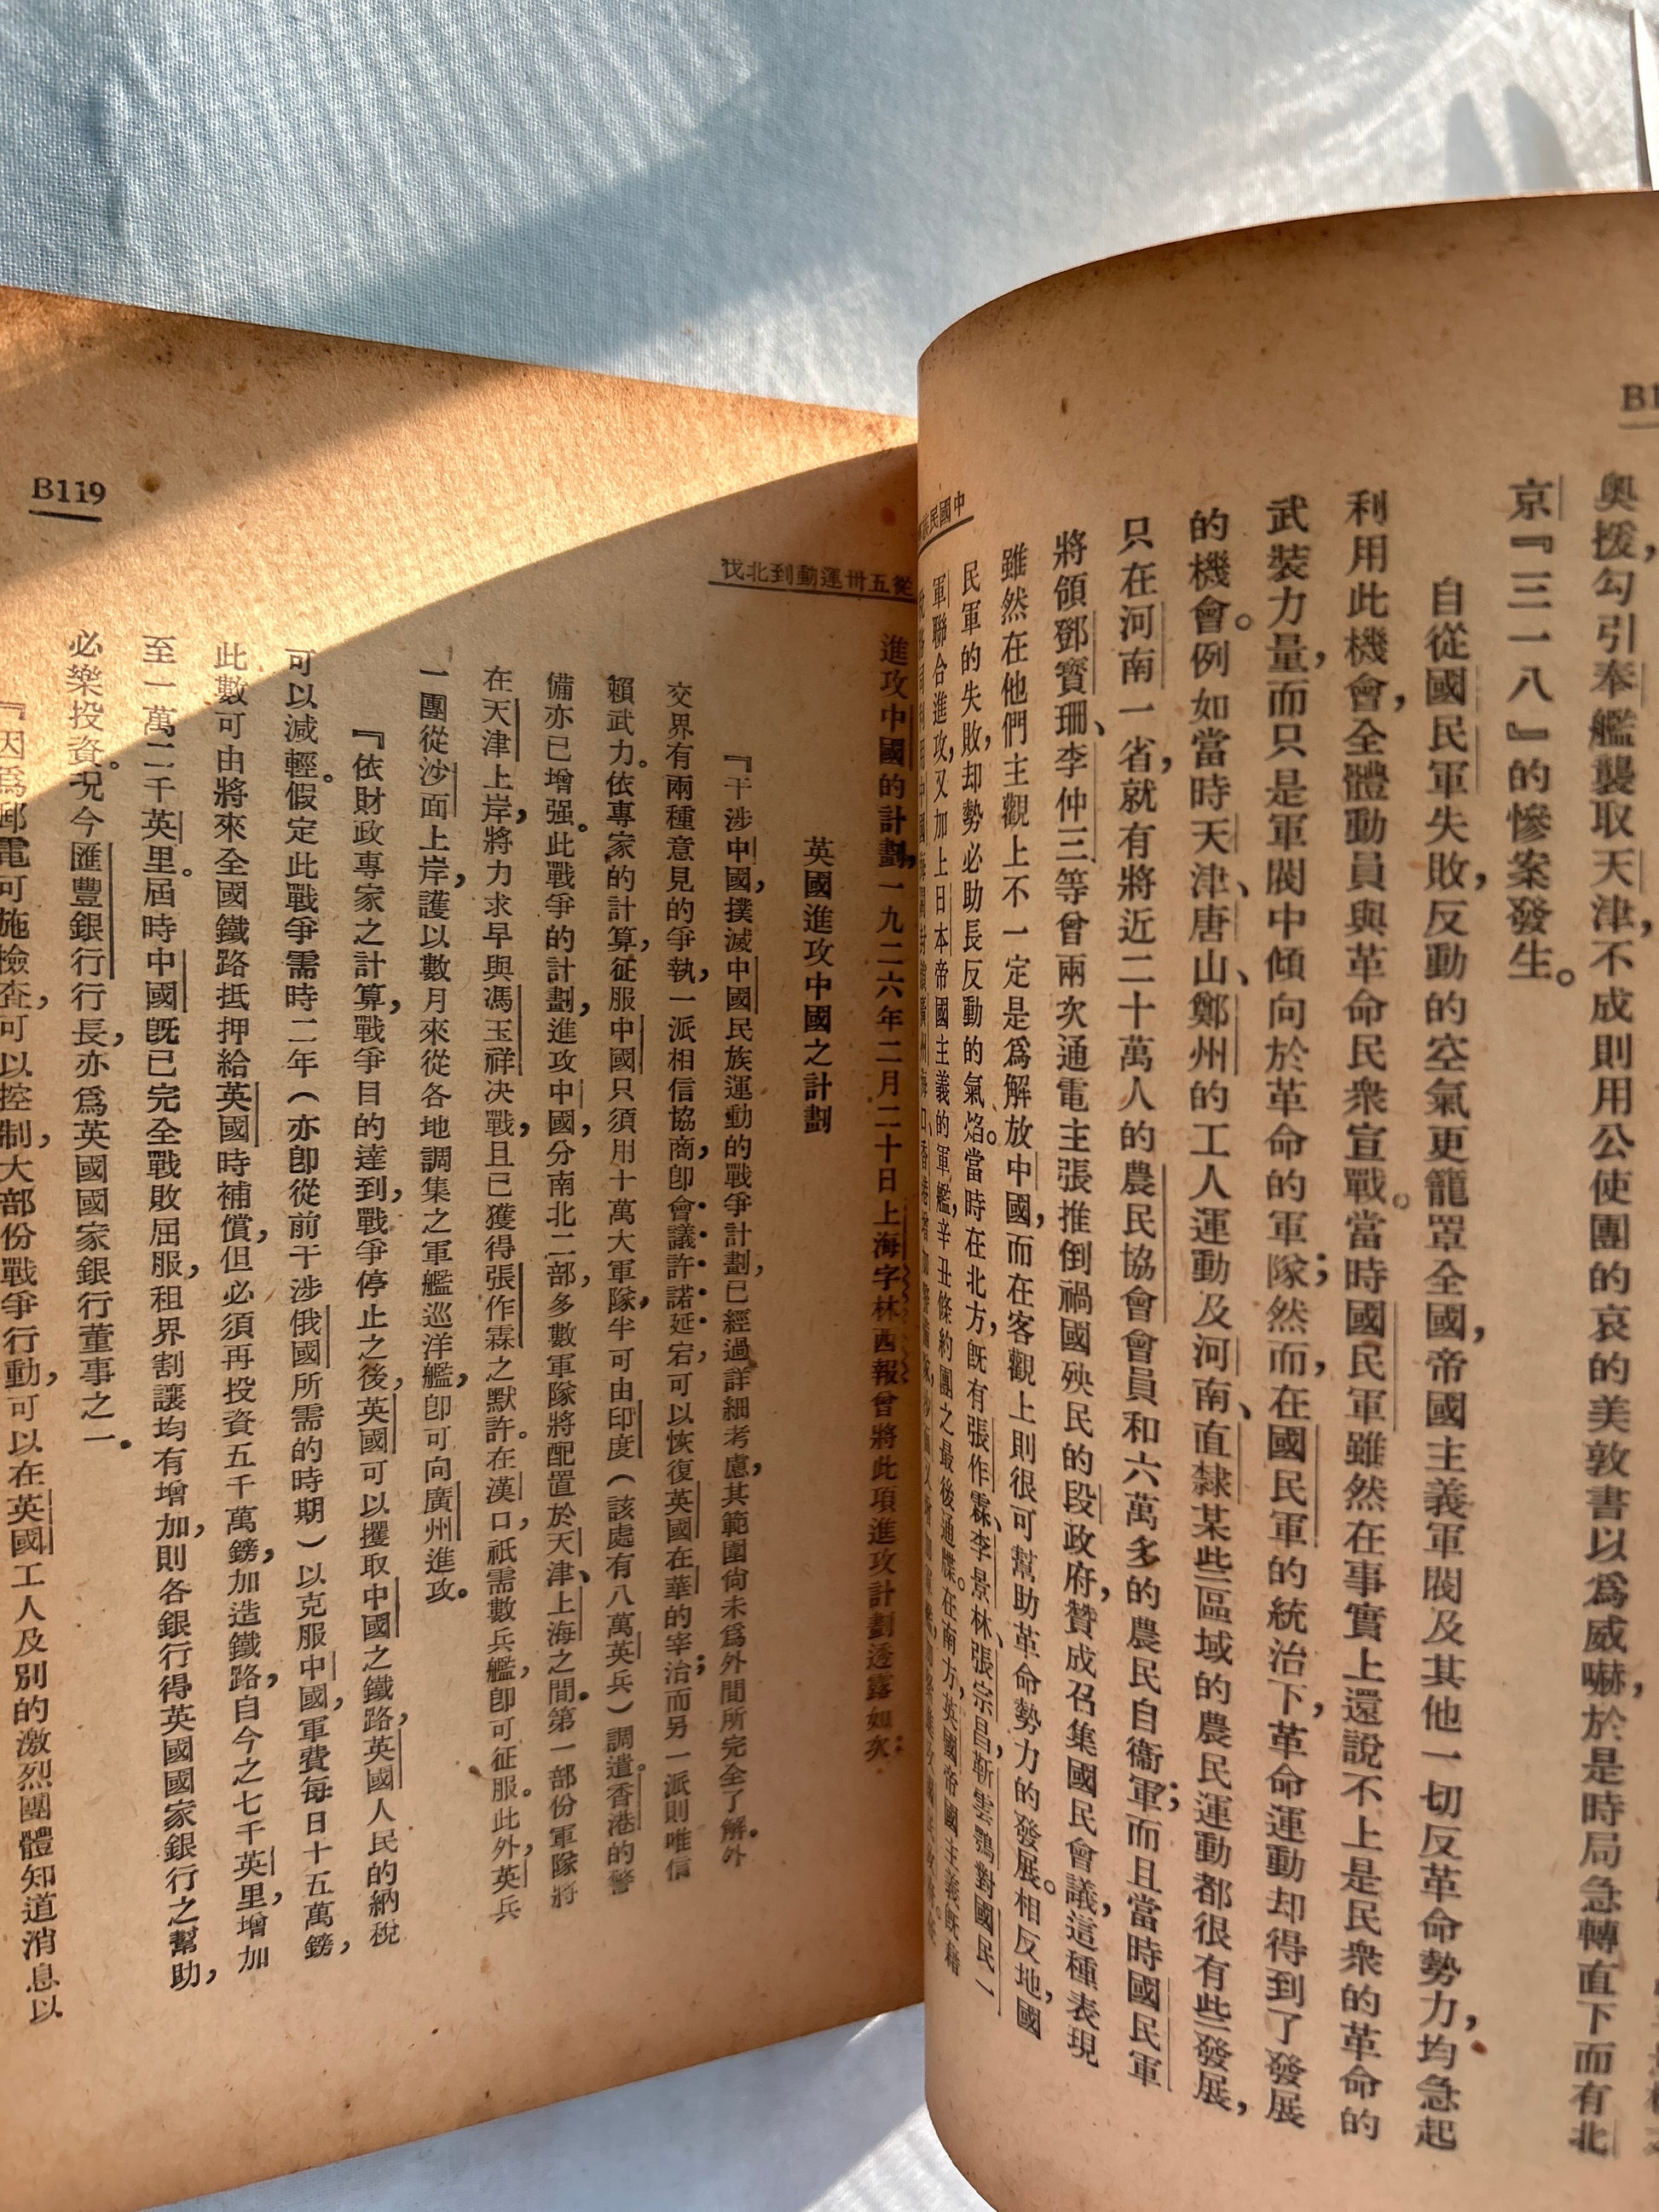 奧援，勾引奉艦襲取天津，不成則用公使團的哀的美敦書以爲威嚇，於是時局急轉直下而有北
京『三一八』的慘案發生。
自從國民軍失敗，反動的空氣更籠罩全國，帝國主義軍閥及其他一切反革命勢力，均急起
利用此機會，全體動員與革命民衆宣戰。當時國民軍雖然在事實上還說不上是民衆的革命的
武裝力量，而只是軍閥中傾向於革命的軍隊；然而，在國民軍的統治下，革命運動却得到了發展
的機會。例如當時天津、唐山、鄭州的工人運動及河南、直隸某些區域的農民運動都很有些發展，
只在河南一省，就有將近二十萬人的農民協會會員和六萬多的農民自衞軍；而且當時國民軍
將領鄧寶珊、李仲三等曾兩次通電主張推倒禍國殃民的段政府，贊成召集國民會議，這種表現
雖然在他們主觀上不一定是爲解放中國，而在客觀上則很可幫助革命勢力的發展。相反地，國
民軍的失敗，却勢必助長反動的氣焰。當時在北方，旣有張作霖、李景林、張宗昌，靳雲鶚對國民一
軍聯合進攻，又加上日本帝國主義的軍艦，辛丑條約團之最後通牒。在南方，英國帝國主義旣藉
中國民族
B1
從五卅運動到北伐
B119
進攻中國的計劃，一九二六年二月二十日上海字林西報曾將此項進攻計劃透露如次：
英國進攻中國之計劃
『干涉中國，撲滅中國民族運動的戰爭計劃，已經過詳細考慮，其範圍尙未爲外間所完全了解。外
交界有兩種意見的爭執，一派相信協商，卽會議許諾延宕，可以恢復英國在華的宰治；而另一派則唯信
賴武力。依專家的計算，征服中國只須用十萬大軍隊，半可由印度（該處有八萬英兵）調遣。香港的警
備亦已增强。此戰爭的計劃，進攻中國，分南北二部，多數軍隊將配置於天津、上海之間。第一部份軍隊將
在天津上岸，將力求早與馮玉祥決戰，且已獲得張作霖之默許。在漢口，祇需數兵艦，卽可征服。此外，英兵
一團從沙面上岸，護以數月來從各地調集之軍艦巡洋艦，卽可向廣州進攻。
『依財政專家之計算，戰爭目的達到，戰爭停止之後，英國可以攫取中國之鐵路，英國人民的納稅
可以減輕。假定此戰爭需時二年（亦卽從前干涉俄國所需的時期）以克服中國，軍費每日十五萬鎊，
此數可由將來全國鐵路抵押給英國時補償，但必須再投資五千萬鎊，加造鐵路，自今之七千英里，增加
至一萬二千英里。屆時中國旣已完全戰敗屈服，租界割讓均有增加，則各銀行得英國國家銀行之幫助，
必樂投資。况今匯豐銀行行長，亦爲英國國家銀行董事之一。
『因爲郵電可施檢查，可以控制，大部份戰爭行動，可以在英國工人及別的激烈團體知道消息以